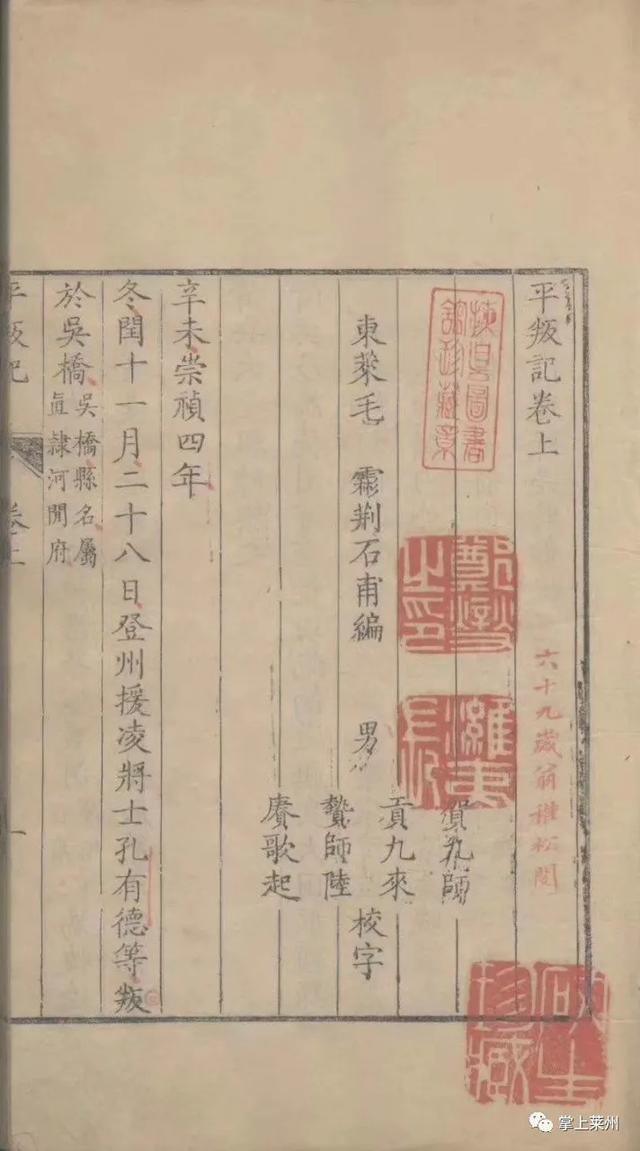 平叛記卷上
東萊毛 霦荆石甫編 男
貢九來
贄師陸
賡歌起
校字
辛未崇禎四年
冬閏十一月二十八日登州援凌將士孔有德等叛
於吳橋吳橋縣名屬
直隷河閒府
平叛記 卷上 一
六十九歲翁稚松閱
之印
珍藏
掌上莱州